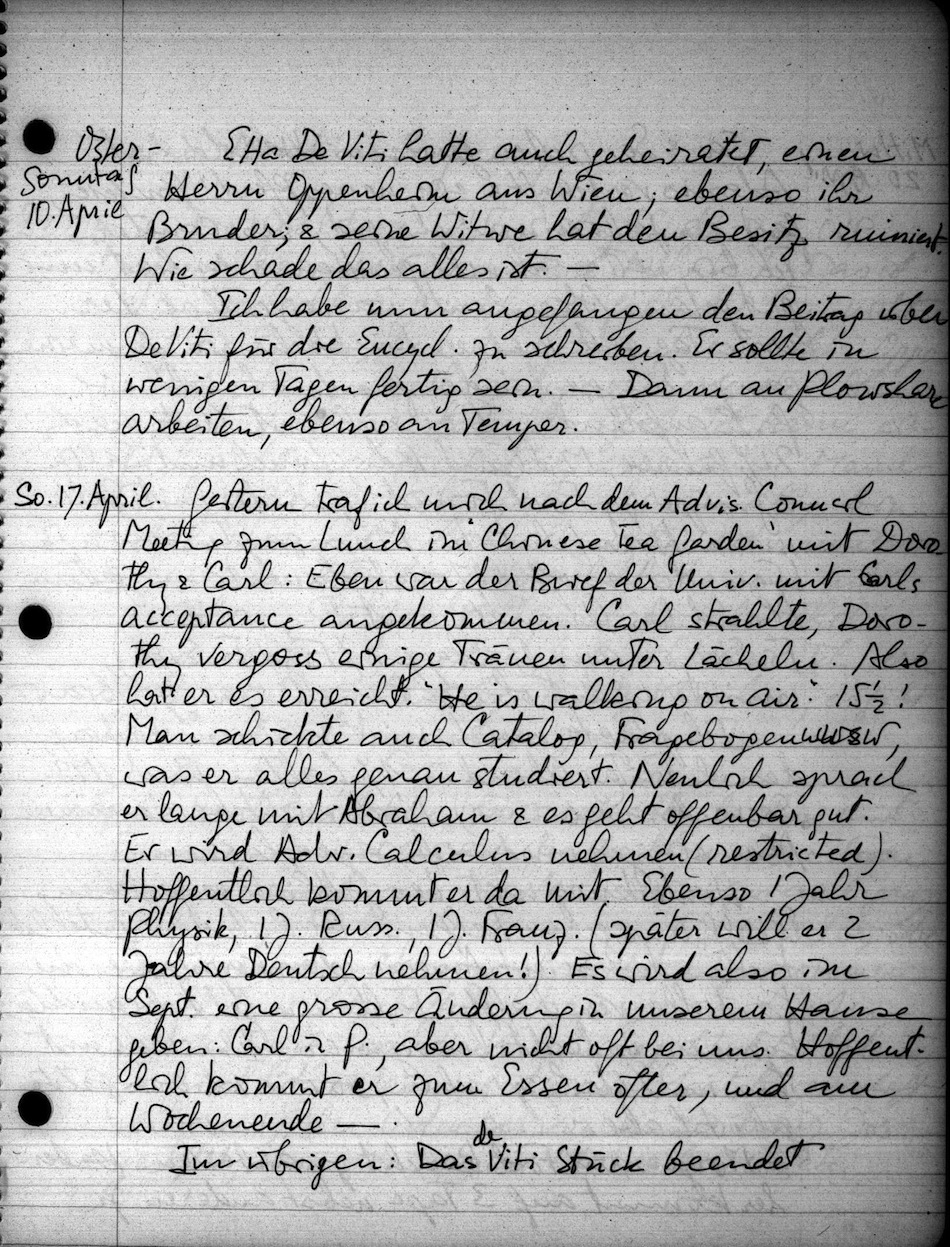 Oster-
Sonntag
10. April
Etta De Viti hatte auch geheiratet, einen
Herrn Oppenheim aus Wien; ebenso ihr
Bruder; & seine Witwe hat den Besitz ruiniert.
Wie schade das alles ist. —
Ich habe nun angefangen den Beitrag über
DeViti für die Encycl. zu schreiben. Er sollte in
wenigen Tagen fertig sein. — Dann an Plowshare
arbeiten, ebenso an Temper.
So. 17. April. Gestern traf ich mich nach dem Advis. Council
Meeting zum Lunch im "Chinese Tea Garden" mit Doro
thy & Carl: Eben war der Brief der Univ. mit Carls
acceptance angekommen. Carl strahlte, Doro-
thy vergoss einige Tränen unter Lächeln. Also
hat er es erreicht. "He is walking on air." 15½!
Man schickte auch Catalog, Fragebogen usw,
was er alles genau studiert. Neulich sprach
er lange mit Abraham & es geht offenbar gut.
Er wird Adv. Calculus nehmen (restricted).
Hoffentlich kommt er da mit. Ebenso 1 Jahr
Physik, 1 J. Russ., 1 J. Franz. (später will er 2
Jahre Deutsch nehmen!). Es wird also im
Sept. eine grosse Änderung in unserem Hause
geben: Carl in P., aber nicht oft bei uns. Hoffent-
lich kommt er zum Essen öfter, und am
Wochenende —.
Im übrigen: Das de Viti Stück beendet